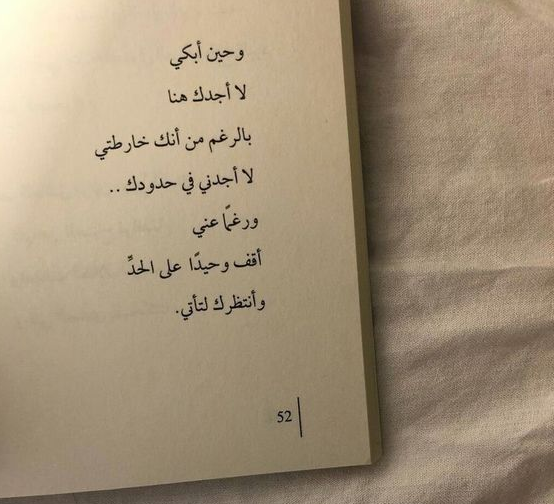 وحين أبكي
لا أجدك هنا
بالرغم من أنك خارطتي
لا أجدني في حدودك ..
ورغمًا عني
أقف وحيدًا على الحدِّ
وأنتظرك لتأتي.
52